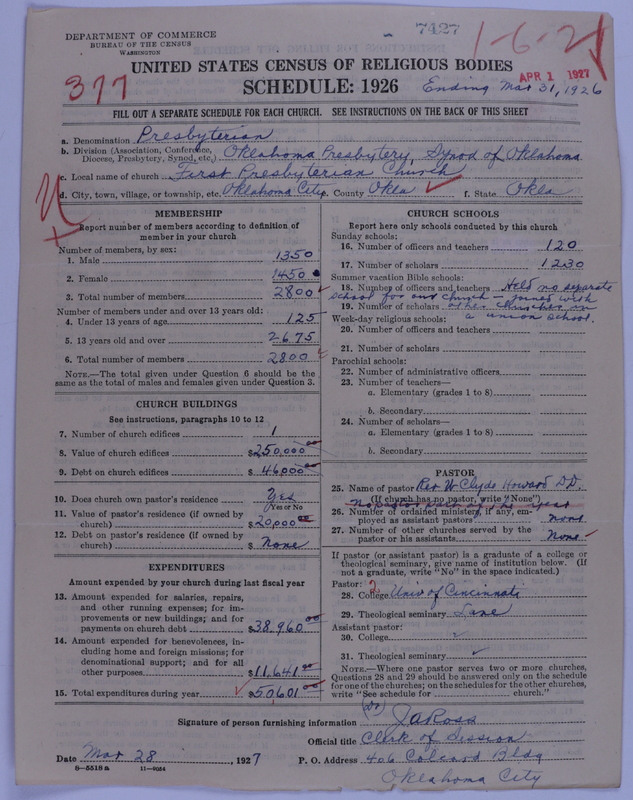 DEPARTMENT OF COMMERCE
BUREAU OF THE CENSUS
WASHINGTON
7427
1-6-21
377
UNITED STATES CENSUS OF RELIGIOUS BODIES
APR 1 1927
SCHEDULE: 1926
Ending Mar 31, 1926
FILL OUT A SEPARATE SCHEDULE FOR EACH CHURCH. SEE INSTRUCTIONS ON THE BACK OF THIS SHEET
a. Denomination Presbyterian
b. Division (Association, Conference, Diocese, Presbytery, Synod, etc.) Oklahoma Presbytery, Synod of Oklahoma
c. Local name of church First Presbyterian Church
d. City, town, village, or township, etc. Oklahoma City e. County Okla f. State Okla
MEMBERSHIP
Report number of members according to definition of
member in your church
Number of members, by sex:
1. Male 1350
2. Female 1450
3. Total number of members 2800
Number of members under and over 13 years old:
4. Under 13 years of age 125
5. 13 years old and over 2675
6. Total number of members 2800
NOTE.—The total given under Question 6 should be the
same as the total of males and females given under Question 3.
CHURCH BUILDINGS
See instructions, paragraphs 10 to 12
7. Number of church edifices 1
8. Value of church edifices $250,000.00
9. Debt on church edifices $46,000.00
10. Does church own pastor's residence Yes
Yes or No
11. Value of pastor's residence (if owned by
church) $20,000.00
12. Debt on pastor's residence (if owned by
church) $ None
EXPENDITURES
Amount expended by church during last fiscal year
13. Amount expended for salaries, repairs,
and other running expenses; for im-
provements or new buildings; and for
payments on church debt $38,960.00
14. Amount expended for benevolences, in-
cluding home and foreign missions; for
denominational support; and for all
other purposes $11,641.00
15. Total expenditures during year $50,601.00
CHURCH SCHOOLS
Report here only schools conducted by this church
Sunday schools:
16. Number of officers and teachers 120
17. Number of scholars 1230
Summer vacation Bible schools:
18. Number of officers and teachers Held no separate
school for our church - joined with
19. Number of scholars other churches in
Week-day religious schools: a union school.
20. Number of officers and teachers
21. Number of scholars
Parochial schools:
22. Number of administrative officers
23. Number of teachers—
a. Elementary (grades 1 to 8)
b. Secondary
24. Number of scholars—
a. Elementary (grades 1 to 8)
b. Secondary
PASTOR
25. Name of pastor Rev. W Clyde Howard DD.
(If church has no pastor, write "None")
No pastor part of the year
26. Number of ordained ministers, if any, em-
ployed as assistant pastors none
27. Number of other churches served by the
pastor or his assistants None
If pastor (or assistant pastor) is a graduate of a college or
theological seminary, give name of institution below. (If
not a graduate, write "No" in the space indicated.)
Pastor: 2
28. College Univ of Cincinnati
29. Theological seminary Lane
Assistant pastor:
30. College
31. Theological seminary
NOTE.—Where one pastor serves two or more churches,
Questions 28 and 29 should be answered only on the schedule
for one of the churches; on the schedules for the other churches,
write "See schedule for church."
Signature of person furnishing information J A Ross
Official title Clerk of Session
Date Mar 28, 1927 P. O. Address 406 Colcord Bldg
Oklahoma City
8—5518 a 11—9054